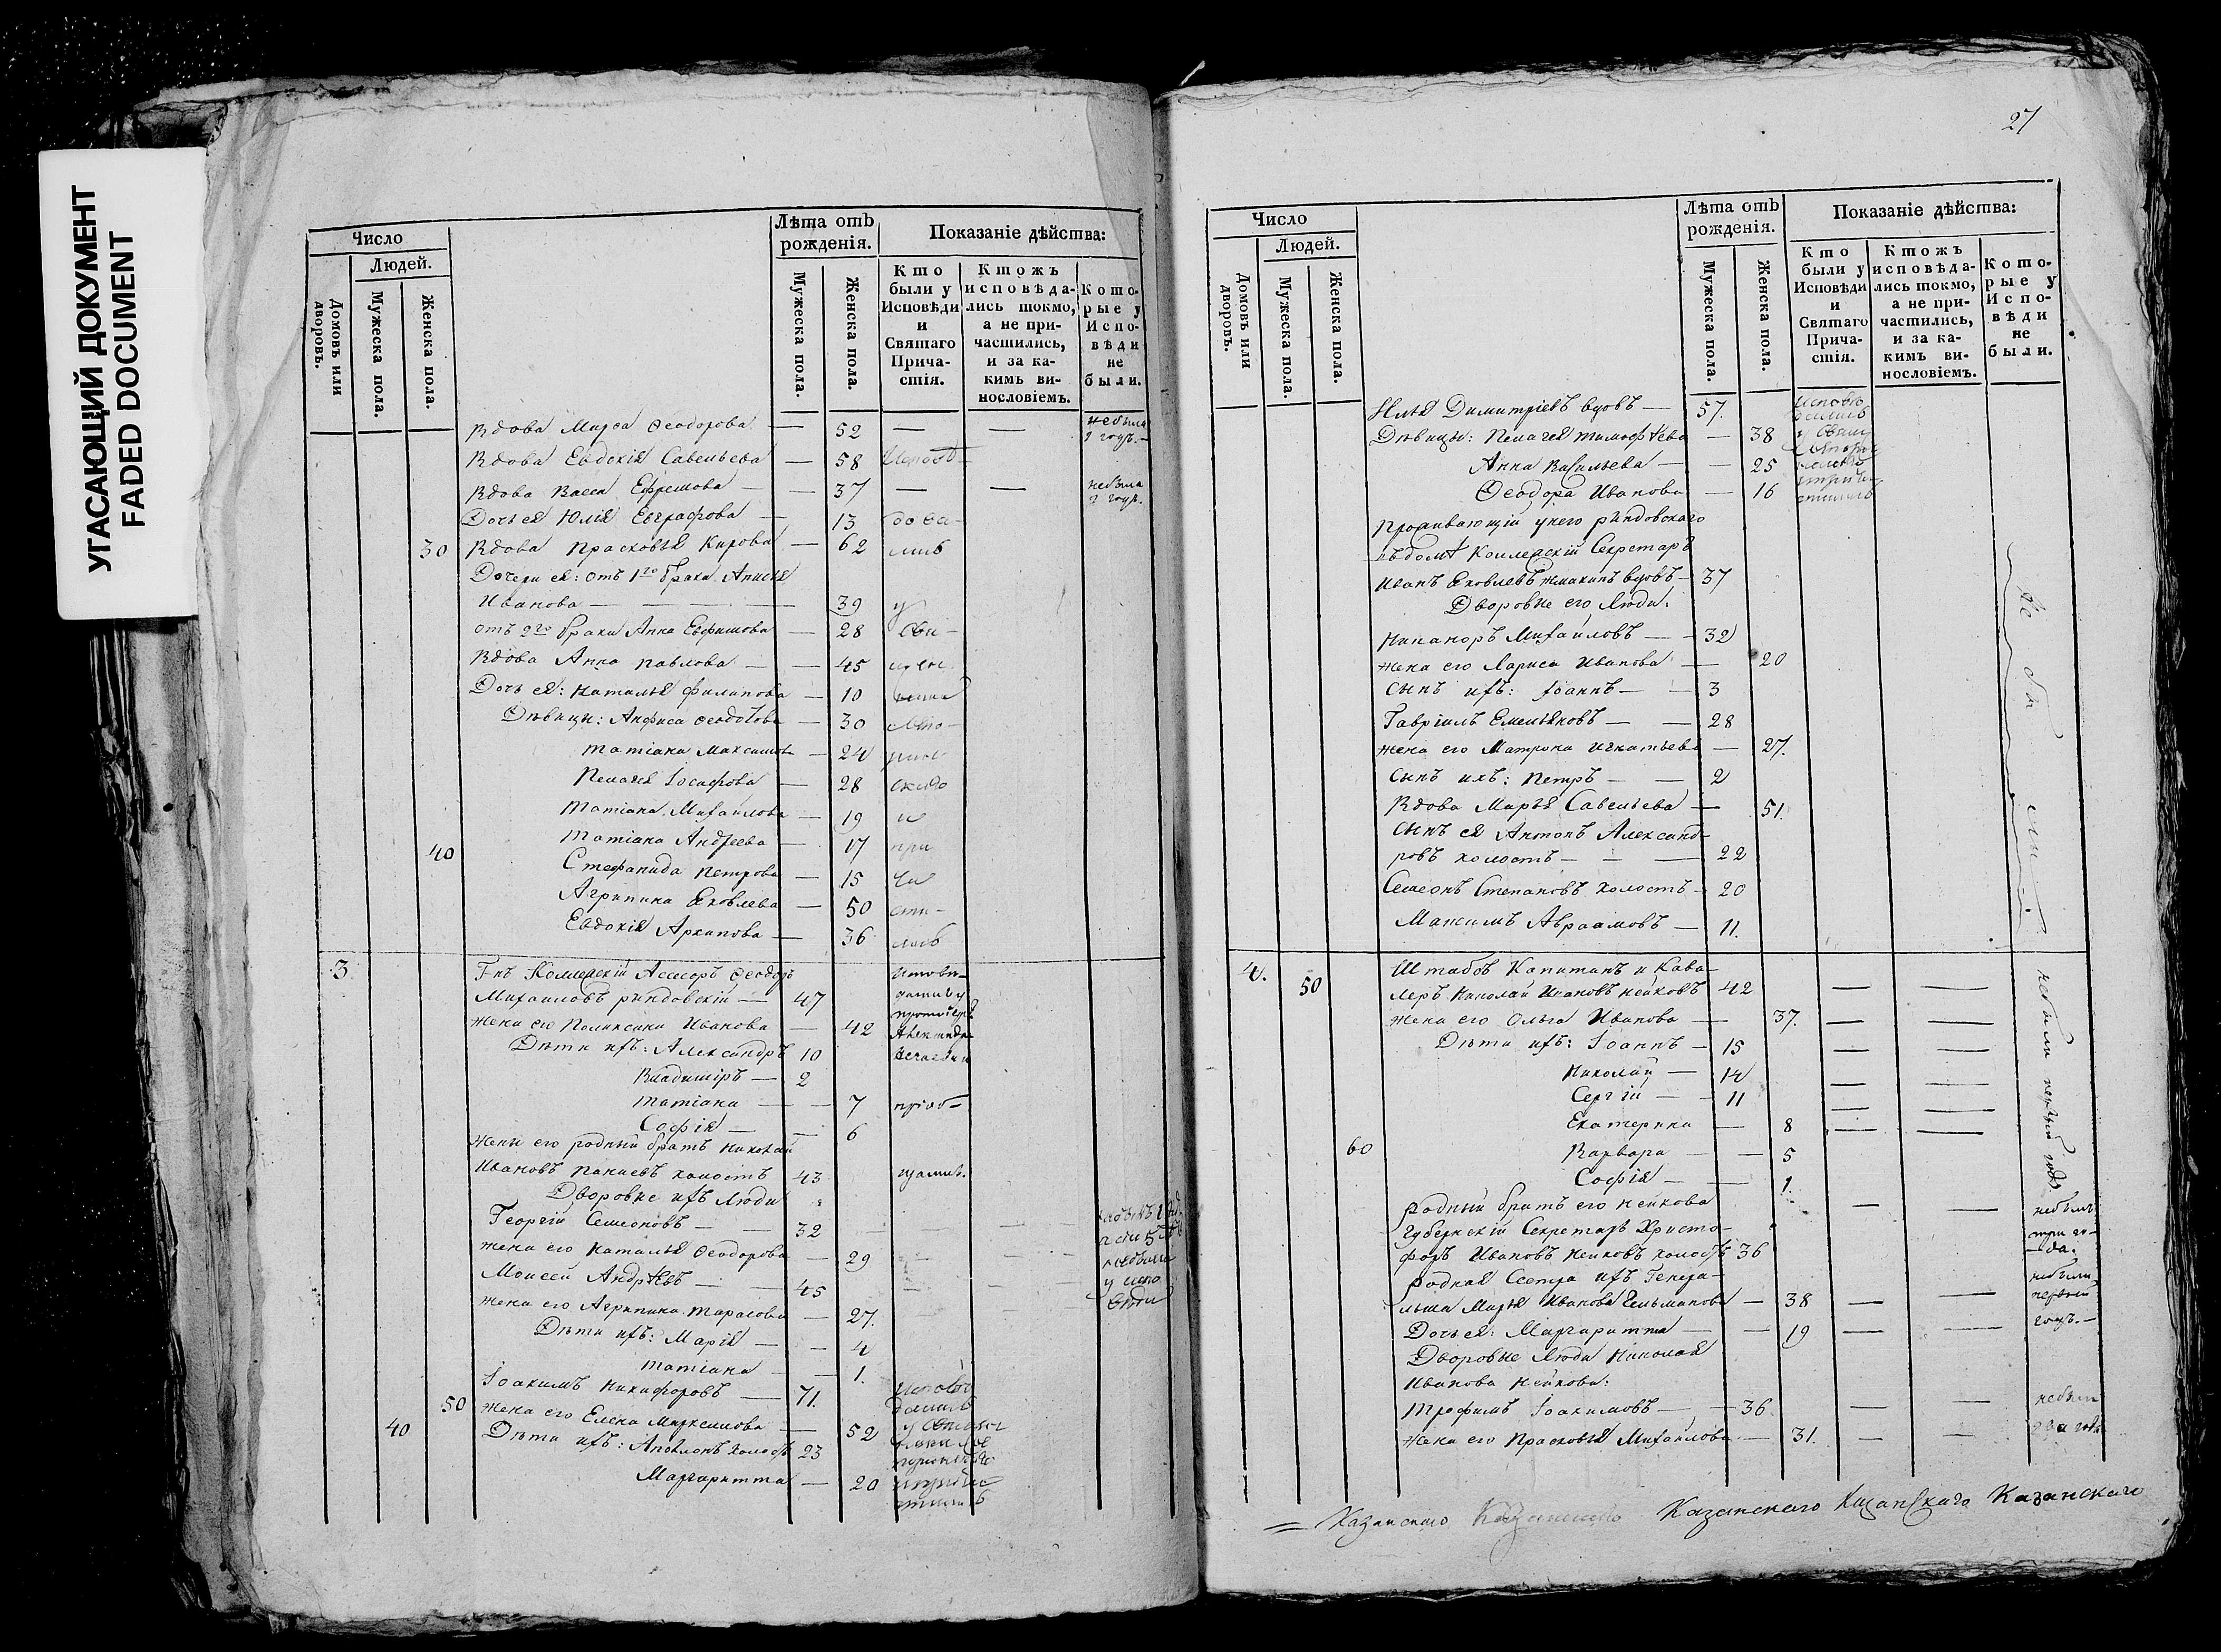 УГАСАЮЩИЙ ДОКУМЕНТ
FADED DOCUMENT
Число
Людей.
Домовъ или дворовъ.
Мужеска пола.
Женска пола.
Лѣта отъ рожденія.
Мужеска пола.
Женска пола.
Показаніе дѣйства:
Кто были у Исповѣди и Святаго Причастія.
Ктожъ исповѣдались токмо, а не причастились, и за какимъ винословіемъ.
Которые у Исповѣди не были.
Вдова Марѳа Ѳеодорова — 52 — —
Вдова Евдокія Савельева — 58
Вдова Васса Ефремова — 37 — —
Дочь ея Юлія Евграфова — 13
30 Вдова Прасковья Кирова — 62
Дочери ея: отъ 1го брака Анисья
Иванова — 39 у
отъ 2го брака Анна Евфимова — 28
Вдова Анна Павлова — 45
Дочь ея: Наталья Филипова — 10
Дѣвицы: Анфиса Ѳеодотова — 30
Татіана Максимова — 24
Пелагея Іосафова — 28
Татіана Михайлова — 19 и
40 Татіана Андреева — 17 при
Стефанида Петрова — 15 ча
Агрипина Яковлева — 50 сти-
Евдокія Архипова — 36 лись
3 Г-нъ Коллежскій Асессоръ Ѳеодоръ
Михаиловъ Рындовскій — 47
жена его Поликсина Иванова — 42
Дѣти ихъ: Александръ 10
Владиміръ — 2
Татіана — 7 пріоб-
Софія — 6
Жены его родный братъ Николай
Ивановъ Панаевъ холостъ 43 щались.
Дворовые ихъ люди
Георгій Семеоновъ — 32
жена его Наталья Ѳеодорова — 29
Моисей Андрѣевъ — 45
жена его Агрипина Тарасова — 27.
Дѣти ихъ: Марія — 4
Татіана — 1.
Іоакимъ Никифоровъ — 71.
50 жена его Елена Марксимова — 52
40 Дѣти ихъ: Аполлонъ холостъ 23
Маргаритта — 20
27
Число
Людей.
Домовъ или дворовъ.
Мужеска пола.
Женска пола.
Лѣта отъ рожденія.
Мужеска пола.
Женска пола.
Показаніе дѣйства:
Кто были у Исповѣди и Святаго Причастія.
Ктожъ исповѣдались токмо, а не причастились, и за какимъ винословіемъ.
Которые у Исповѣди не были.
Илья Димитріевъ вдовъ — 57.
Дѣвицы: Пелагея Тимофѣева — 38
Анна Васильева — 25
Ѳеодора Иванова — 16
Проживающій у него Рындовскаго
въ домѣ Коллежскій Секретарь
Иванъ Яковлевъ Жмакинъ вдовъ — 37
Дворовые его люди:
Никаноръ Михайловъ — 32
жена его Лариса Иванова — 20
Сынъ ихъ: Іоаннъ — 3
Гавріилъ Емельяновъ — 28
жена его Матрона Игнатьева — 27.
Сынъ ихъ: Петръ — 2
Вдова Марья Савельева — 51.
Сынъ ея Антонъ Александ-
ровъ холостъ — 22
Семеонъ Степановъ холостъ — 20
Максимъ Авраамовъ — 11.
не были
4. Штабсъ Капитанъ и Кава-
50 леръ Николай Ивановъ Нейковъ 42 — —
жена его Ольга Иванова — 37. — —
Дѣти ихъ: Іоаннъ — 15 — —
Николай — 14 — —
Сергій — 11 — —
Екатерина — 8 — —
60 Варвара — 5
Софія — 1.
не были первый годъ.
Родный братъ его Нейкова — —
Губернскій Секретарь Христо-
форъ Ивановъ Нейковъ холостъ 36
не былъ три го-да.
Родная Сестра ихъ Генера-
льша Марья Иванова Гельманова — 38 — —
Дочь ея: Маргаритта — 19 — —
не были первый годъ. —
Дворовые люди Николая
Иванова Нейкова:
Трофимъ Іоакимовъ — 36 — —
жена его Прасковья Михайлова — 31. — —
не были два года
Казанского Казанского Казанскаго Казанскаго Казанскаго